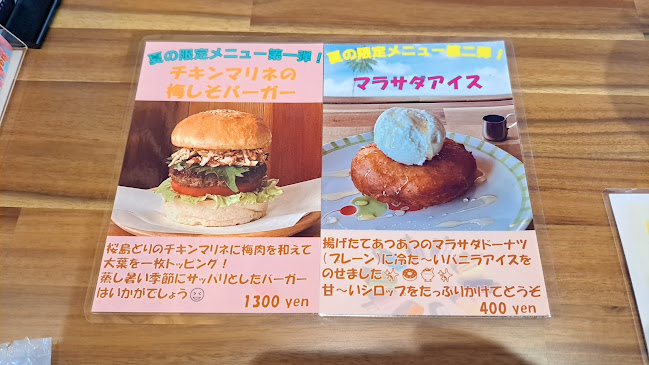 夏の限定メニュー第一弾！
チキンマリネの
梅しそバーガー
桜島どりのチキンマリネに梅肉を和えて
大葉を一枚トッピング！
蒸し暑い季節にサッパリとしたバーガー
はいかがでしょう😊
1300 yen
夏の限定メニュー第二弾！
マラサダアイス
揚げたてあつあつのマラサダドーナツ
(プレーン)に冷た〜いバニラアイスを
のせました
甘〜いシロップをたっぷりかけてどうぞ
400 yen